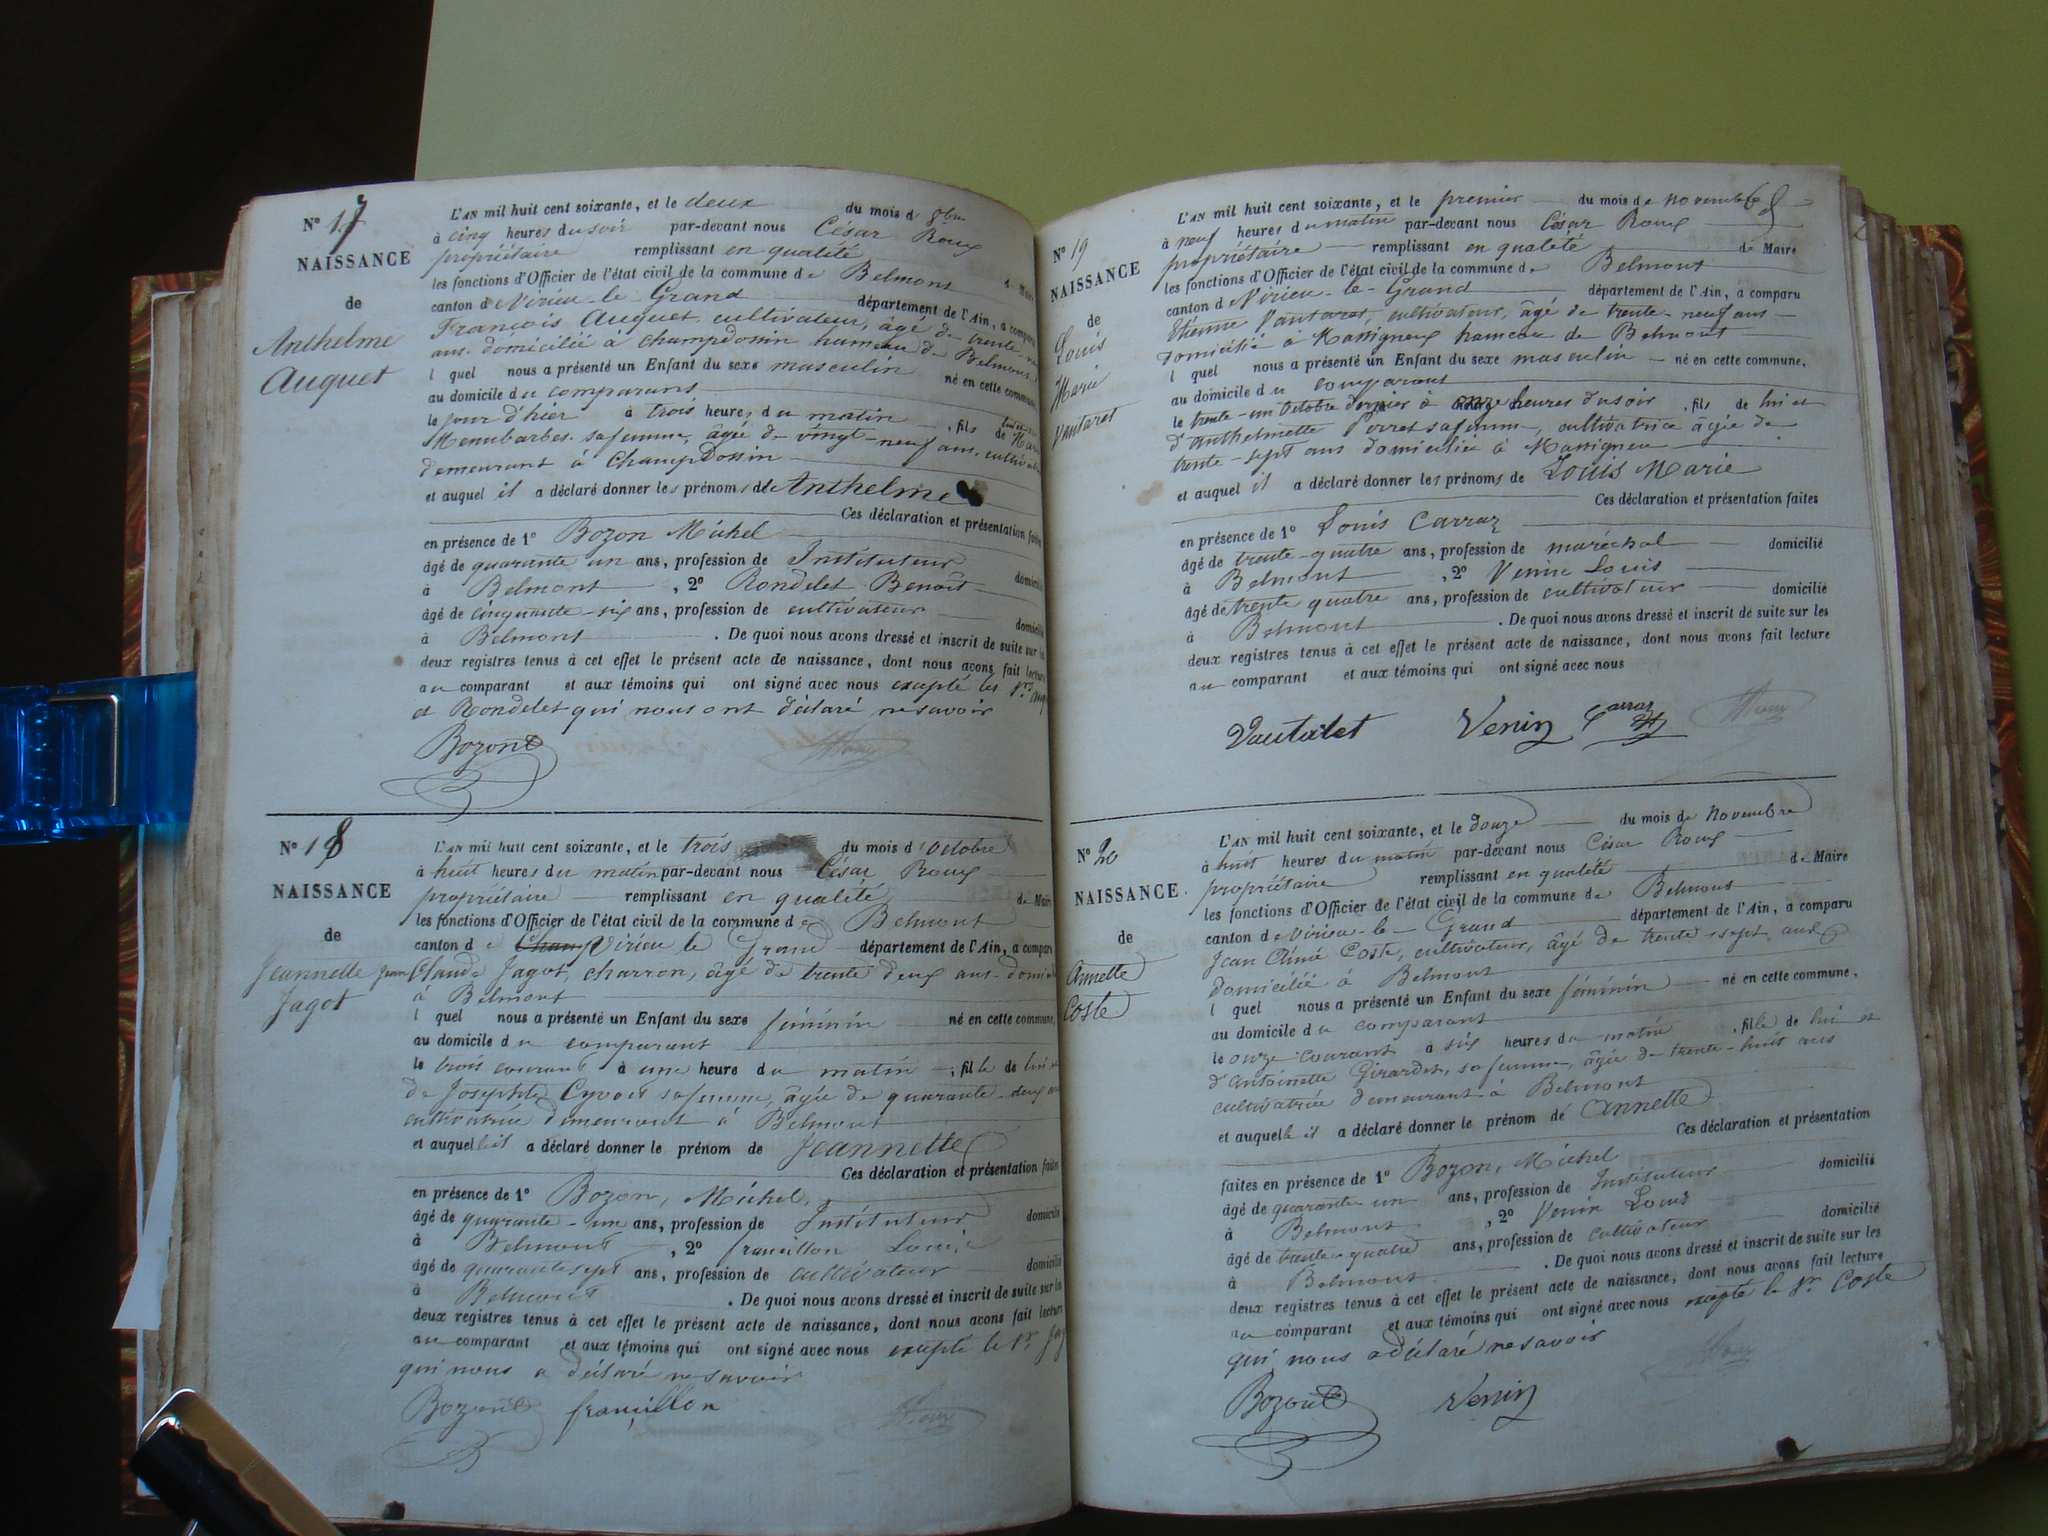 N° 17
NAISSANCE
de
Anthelme
Auguet
L'AN mil huit cent soixante, et le deux du mois d' 8bre
à cinq heures du soir par-devant nous César Roux
propriétaire remplissant en qualité
les fonctions d'Officier de l'état civil de la commune de Belmont
canton de Virieu-le-Grand département de l'Ain, a comparu
François Auguet cultivateur, âgé de trente
ans domicilié à Champdossin hameau de Belmont
l quel nous a présenté un Enfant du sexe masculin né en cette commune
au domicile du comparant
le jour d'hier à trois heures du matin, fils de
sa femme, âgée de vingt-neuf ans
demeurant à Champdossin
et auquel il a déclaré donner les prénoms de Anthelme
Ces déclaration et présentation faites
en présence de 1° Bozon Michel
âgé de quarante un ans, profession de Instituteur
à Belmont, 2° Rondelet Benoît domicilié
âgé de cinquante-six ans, profession de cultivateur
à Belmont. De quoi nous avons dressé et inscrit de suite sur les domicilié
deux registres tenus à cet effet le présent acte de naissance, dont nous avons fait lecture
au comparant et aux témoins qui ont signé avec nous excepté les
et Rondelet qui nous ont déclaré ne savoir
Bozon
N° 18
NAISSANCE
de
Jeannette
Jagot
L'AN mil huit cent soixante, et le trois du mois d'octobre
à huit heures du matin par-devant nous César Roux
propriétaire remplissant en qualité de Maire
les fonctions d'Officier de l'état civil de la commune de Belmont
canton de Virieu le Grand département de l'Ain, a comparu
Jean Claude Jagot, charron, âgé de trente deux ans
à Belmont
l quel nous a présenté un Enfant du sexe féminin né en cette commune,
au domicile du comparant
le trois courant à une heure du matin, fille de lui et
de Josephte sa femme, âgée de quarante-deux
cultivatrice demeurant à Belmont
et auquelle il a déclaré donner le prénom de Jeannette
Ces déclaration et présentation faites
en présence de 1° Bozon, Michel
âgé de quarante-un ans, profession de Instituteur domicilié
à Belmont, 2° francillon Louis
âgé de quarante sept ans, profession de cultivateur domicilié
à Belmont. De quoi nous avons dressé et inscrit de suite sur les
deux registres tenus à cet effet le présent acte de naissance, dont nous avons fait lecture
au comparant et aux témoins qui ont signé avec nous excepté le Sr
qui nous a déclaré ne savoir
Bozon francillon Roux
N° 19
NAISSANCE
de
Louis
Marie
Vautaret
L'AN mil huit cent soixante, et le premier du mois de novembre
à neuf heures du matin par-devant nous César Roux
propriétaire remplissant en qualité de Maire
les fonctions d'Officier de l'état civil de la commune de Belmont
canton de Virieu-le-Grand département de l'Ain, a comparu
Etienne Vautaret, cultivateur, âgé de trente-neuf ans
domicilié à Massigneu hameau de Belmont
l quel nous a présenté un Enfant du sexe masculin né en cette commune,
au domicile du comparant
le trente-un octobre dernier à onze heures du soir, fils de lui et
d'Anthelmette Perret sa femme, cultivatrice âgée de
trente-sept ans domiciliée à Massigneu
et auquel il a déclaré donner les prénoms de Louis Marie
Ces déclaration et présentation faites
en présence de 1° Louis Carraz
âgé de trente-quatre ans, profession de maréchal domicilié
à Belmont, 2° Venin Louis
âgé de trente quatre ans, profession de cultivateur domicilié
à Belmont. De quoi nous avons dressé et inscrit de suite sur les
deux registres tenus à cet effet le présent acte de naissance, dont nous avons fait lecture
au comparant et aux témoins qui ont signé avec nous
Vautaret Venin Carraz Roux
N° 20
NAISSANCE
de
Annette
Coste
L'AN mil huit cent soixante, et le douze du mois de novembre
à huit heures du matin par-devant nous César Roux
propriétaire remplissant en qualité de Maire
les fonctions d'Officier de l'état civil de la commune de Belmont
canton de Virieu-le-Grand département de l'Ain, a comparu
Jean Aimé Coste, cultivateur, âgé de trente-sept ans
domicilié à Belmont
l quel nous a présenté un Enfant du sexe féminin né en cette commune,
au domicile du comparant
le onze courant à six heures du matin, fille de lui et
d'Antoinette Girardet, sa femme, âgée de trente-huit ans
cultivatrice demeurant à Belmont
et auquelle il a déclaré donner le prénom de Annette
Ces déclaration et présentation
faites en présence de 1° Bozon, Michel
âgé de quarante un ans, profession de Instituteur domicilié
à Belmont, 2° Venin Louis
âgé de trente-quatre ans, profession de cultivateur domicilié
à Belmont. De quoi nous avons dressé et inscrit de suite sur les
deux registres tenus à cet effet le présent acte de naissance, dont nous avons fait lecture
au comparant et aux témoins qui ont signé avec nous excepté le Sr Coste
qui nous a déclaré ne savoir
Bozon Venin Roux